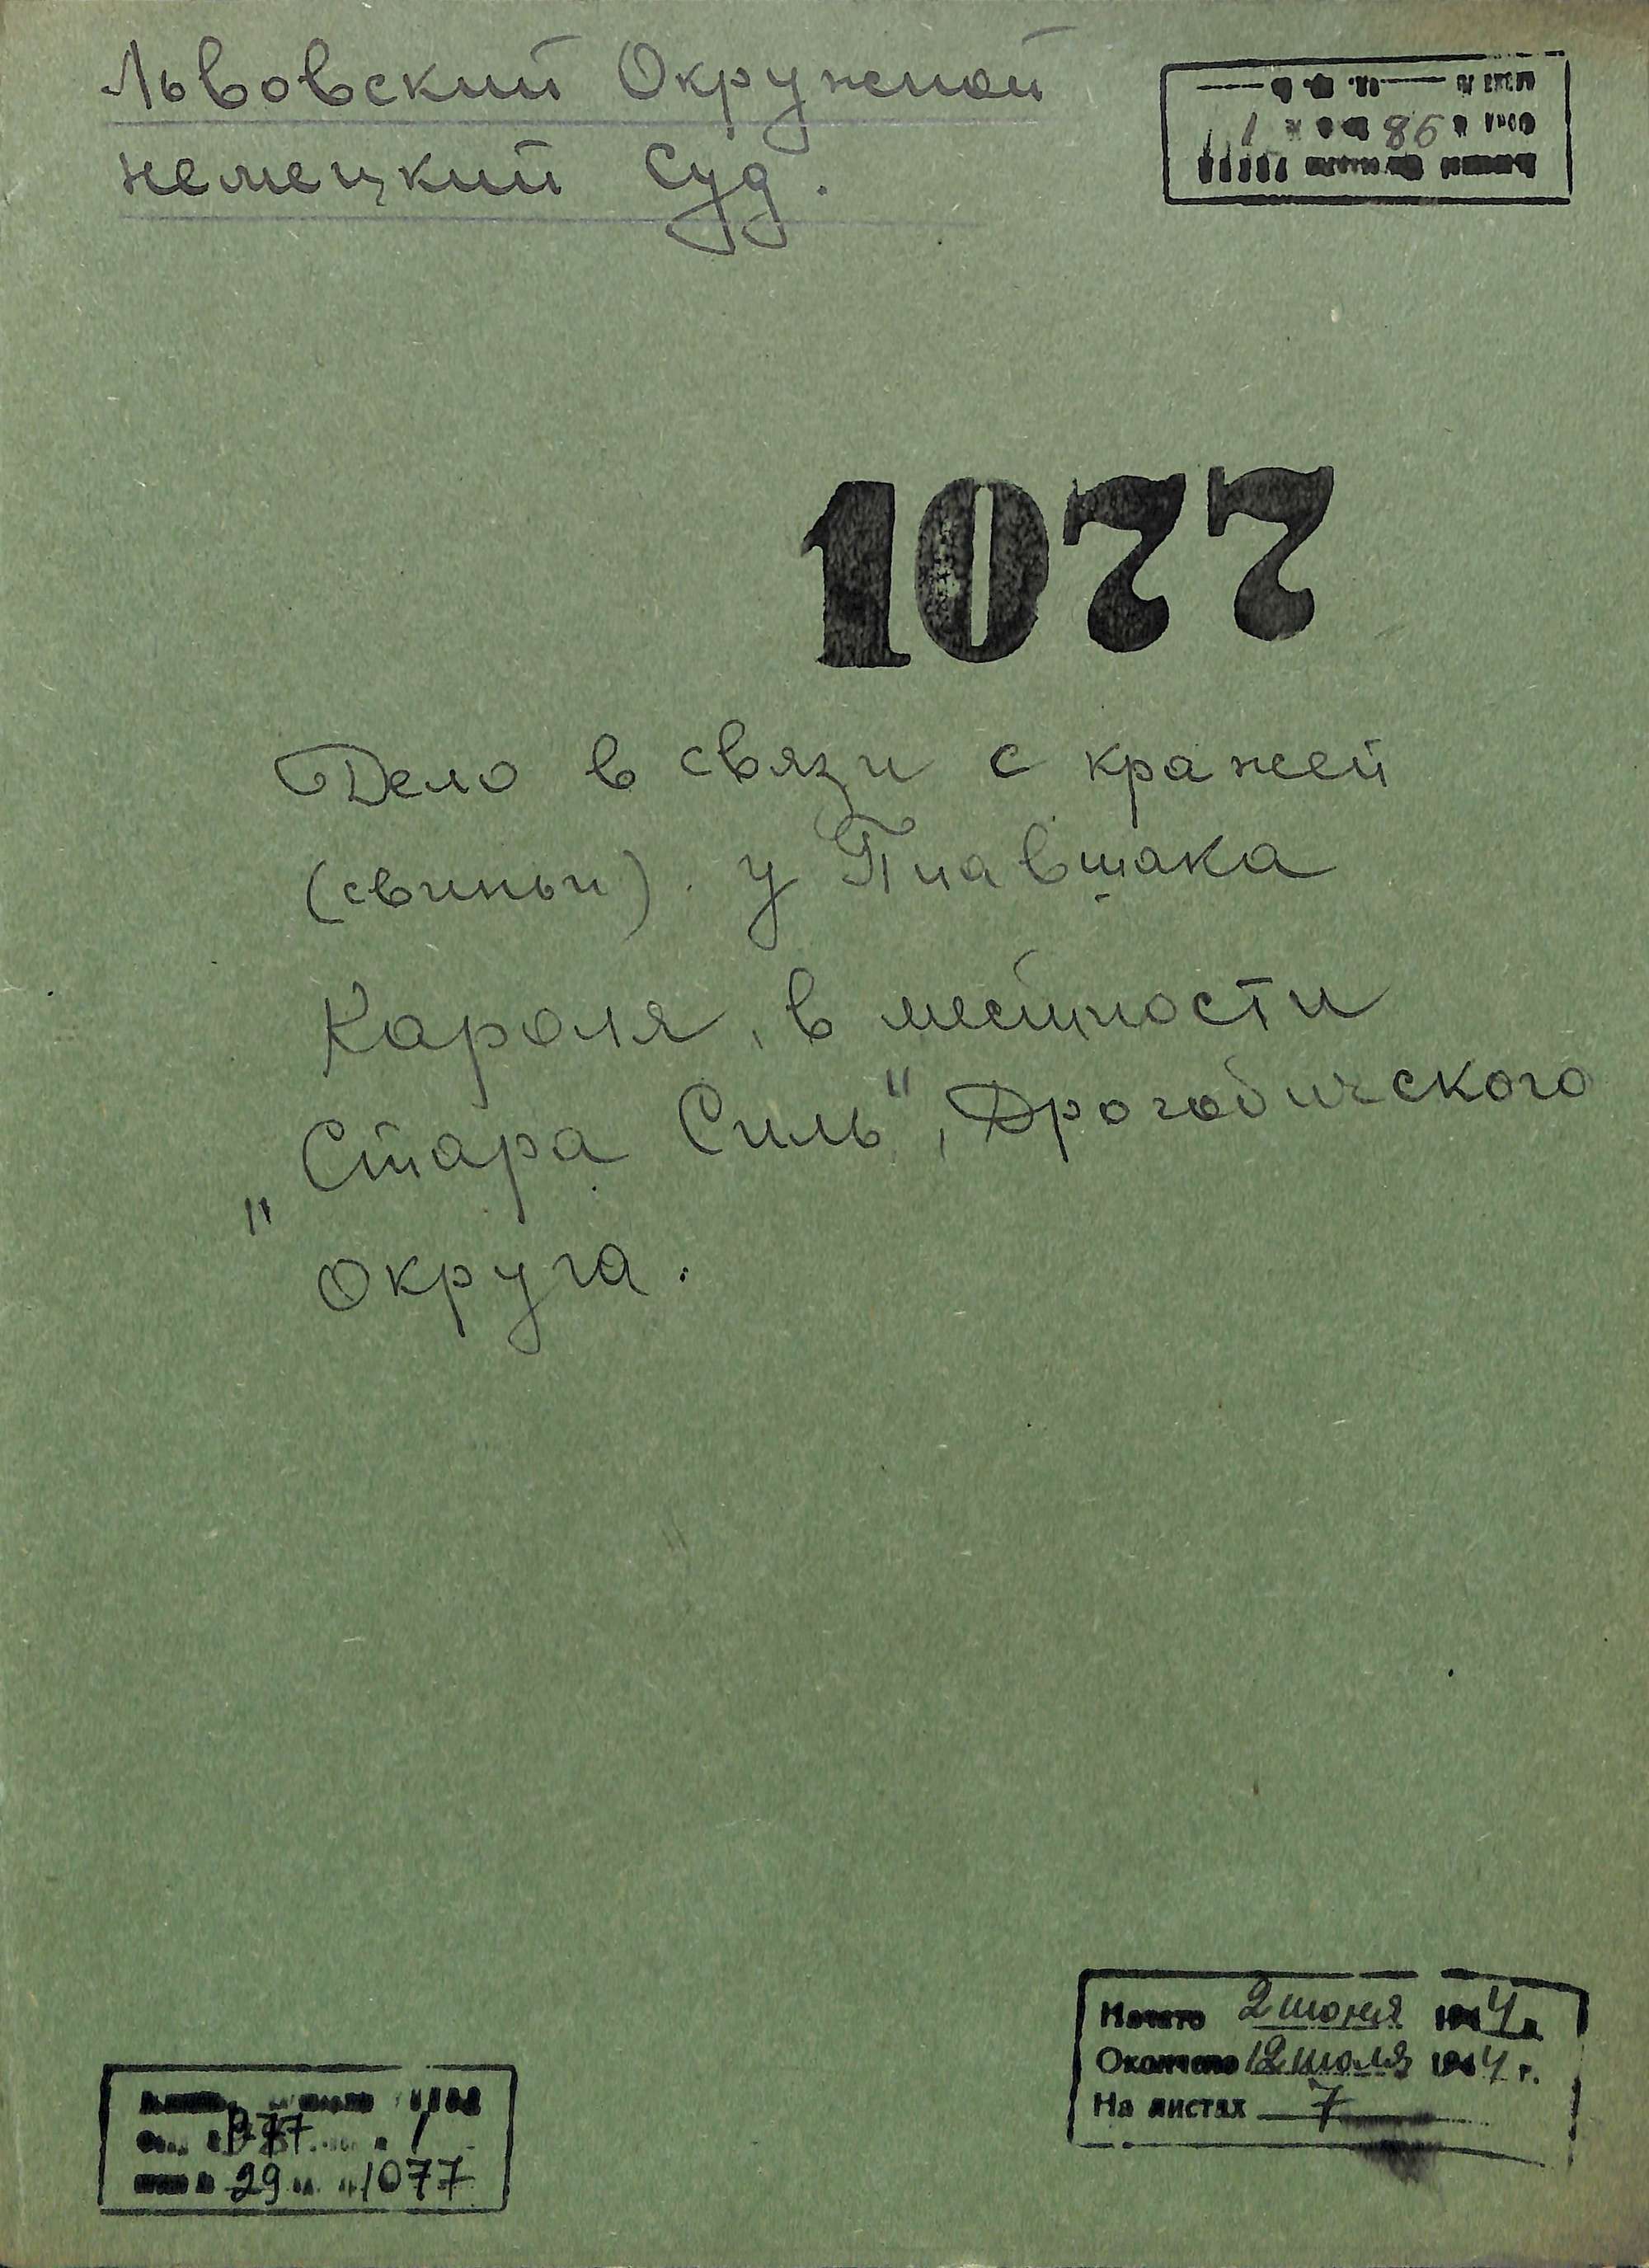 Львовский Окружной
немецкий Суд.
1 86
1077
Дело в связи с кражей
(свиньи) у Пиавшака
Кароля, в местности
„Стара Силь", Дрогобичского
округа.
Начато 2 июня 1944 г.
Окончено 12 июля 1944 г.
На листах 7
Р-77 1
29 1077